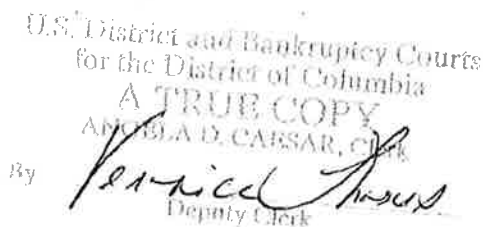 U.S. District and Bankruptcy Courts
for the District of Columbia
A TRUE COPY
ANGELA D. CAESAR, Clerk
By
Deputy Clerk